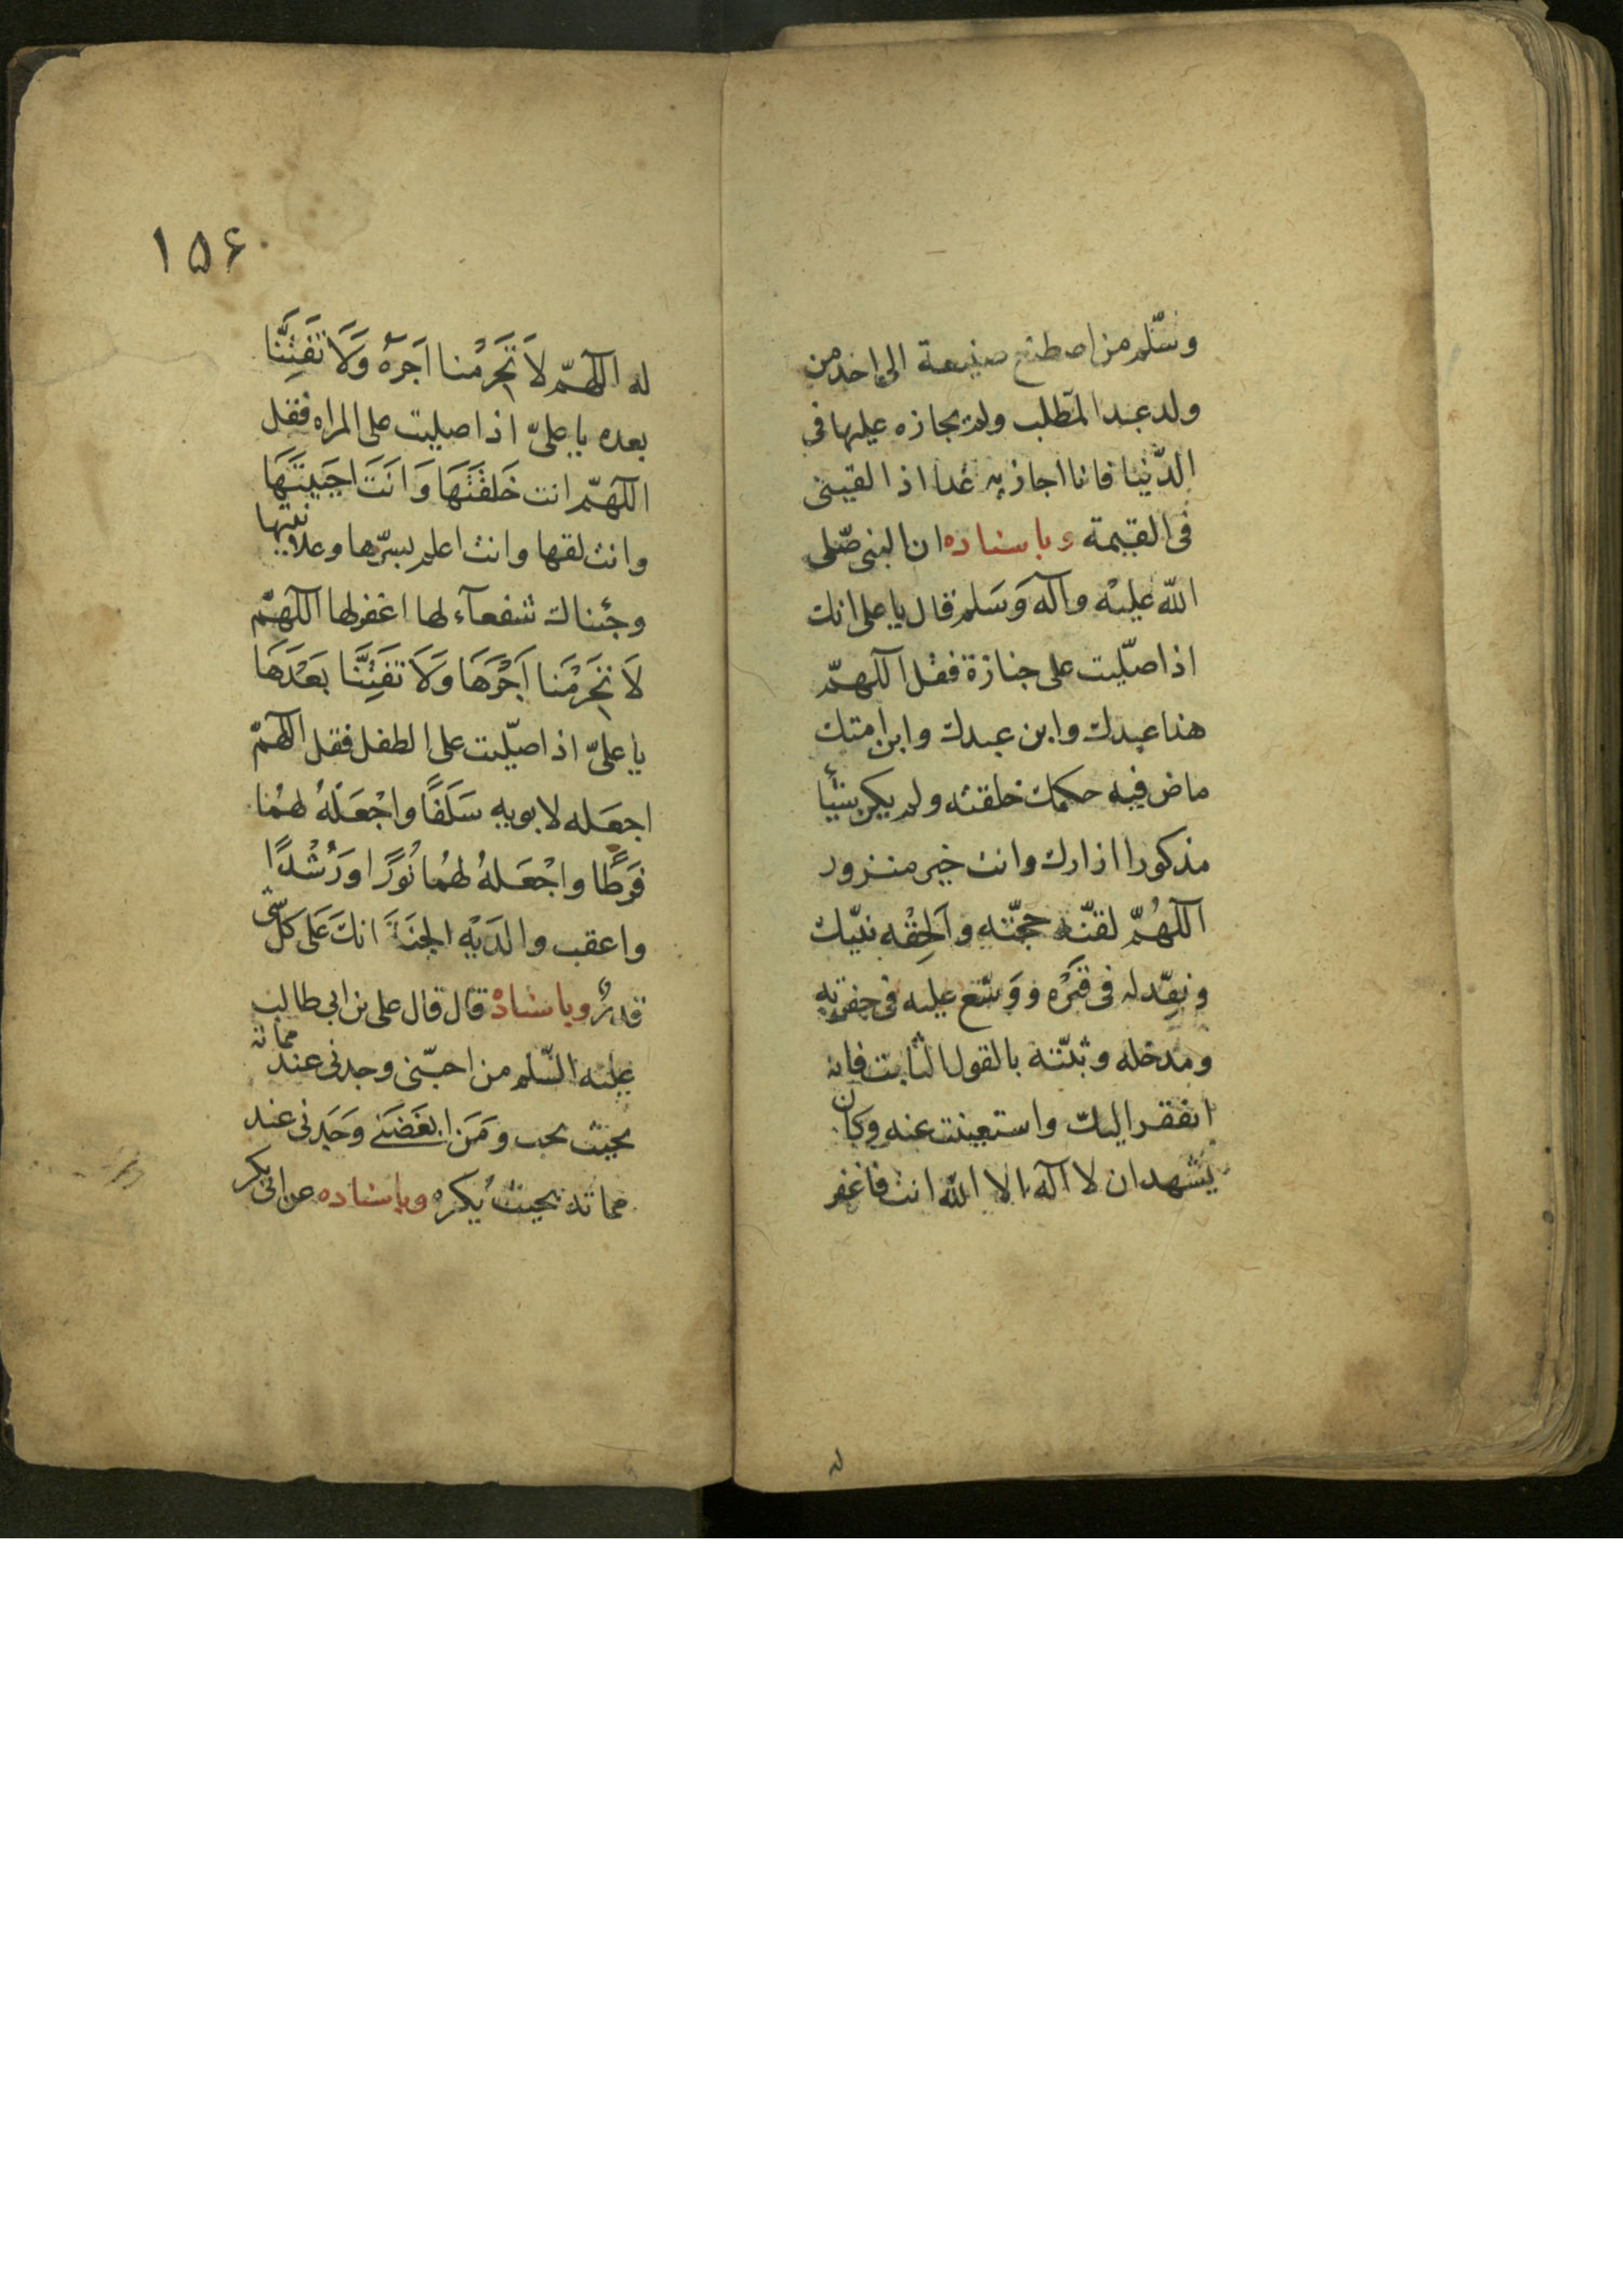 وسلّم من اصطنع صنیعة الی احد من
ولد عبد المطّلب ولم یجازه علیها فی
الدّنیا فانا اجازیه غدا اذا لقینی
فی القیمة وباسناده ان النبی صلّی
اللّه علیْه وآله وَسَلم قال یا علی انك
اذا صلّیت علی جنازة فقل اللّهمّ
هذا عبدك وابن عبدك وابن امتك
ماض فیه حكمك خلقته ولم یكن شیئا
مذكورا ازارك وانت خیر منزور
اللّهُمّ لقنّه حجّته واَلحِقْه نبیّك
ونوّر له فی قبَرْه ووَسّع علیه فی حفرته
ومدخله وثبّته بالقول الثابت فانه
افتقر الیك واستغنیت عنه وكان
یشهد ان لا آله الا اللّه انت فاغفر
له
۱۵۶
له اللّهمّ لاَ تَحَرِمْنا اَجَرهُ وَلَا تَفَتِنَّنا
بعده یا علیّ اذا صلیت علی المراه فقل
اللّهمّ انت خَلَقتَهَا وَاَنتَ احَیَیتَهَا
وانت لقها وانت اعلم بسرّها وعلانیتها
وجئناك شفعآء لها اغفر لها اللّهمّ
لَا تَحَرمْنا اَجْرَهَا وَلَا تَفَتِنَّنا بَعْدَهَا
یا علیّ اذا صلّیت علی الطفل فقل اللّهمّ
اجعَله لابویه سَلَفًا واجْعَلْهُ لهمْا
فَرَطًا واجْعَلهُ لهمُا نُورًا ورُشْدًا
واعقب والدَیْهِ الجنَةَ انكَ عَلی كلّ شی
قدیرٌ وباسنادهْ قال قال علی بن ابی طالب
علیه السّلم من احبّنی وجدنی عند مماته
بحیث یحب ومَن ابغَضَنے وَجَدنی عند
مماته بحیث یُكره وباسناده عن ابی بكر